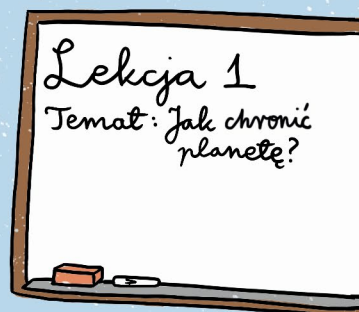 Lekcja 1
Temat: Jak chronić
planetę?